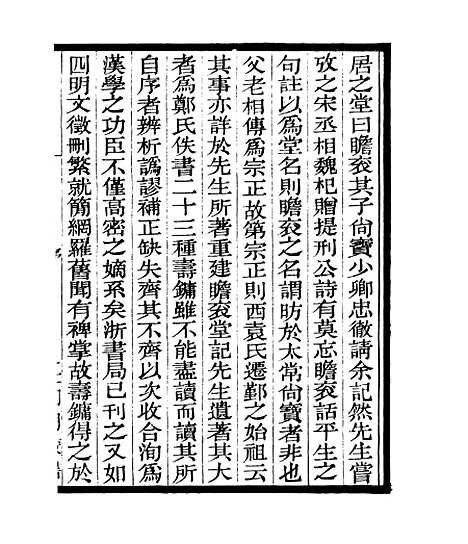 居之堂曰瞻袞其子尙寶少卿忠徹請余記然先生嘗
攷之宋丞相魏杞贈提刑公詩有莫忘瞻袞話平生之
句註以爲堂名則瞻袞之名謂昉於太常尙寶者非也
父老相傳爲宗正故第宗正則西袁氏遷鄞之始祖云
其事亦詳於先生所著重建瞻袞堂記先生遺著其大
者爲鄭氏佚書二十三種壽鏞雖不能盡讀而讀其所
自序者辨析譌謬補正缺失齊其不齊以次收合洵爲
漢學之功臣不僅高密之嫡系矣浙書局已刊之又如
四明文徵刪繁就簡網羅舊聞有裨掌故壽鏞得之於